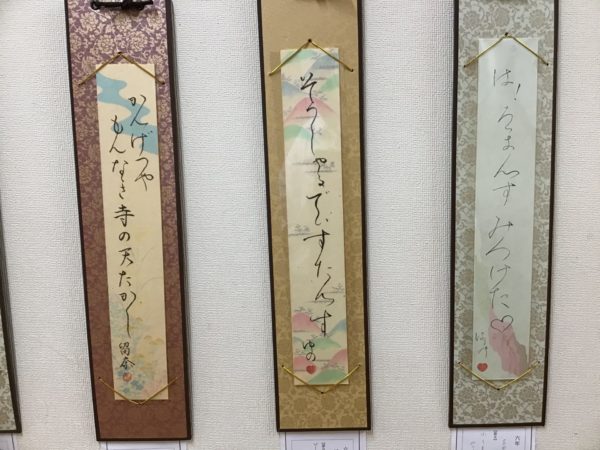 は！ろまんすみつけた♡
六年
そうしゃるでぃすたんす
ゆの
かんげつや
もんなき寺の天たかし